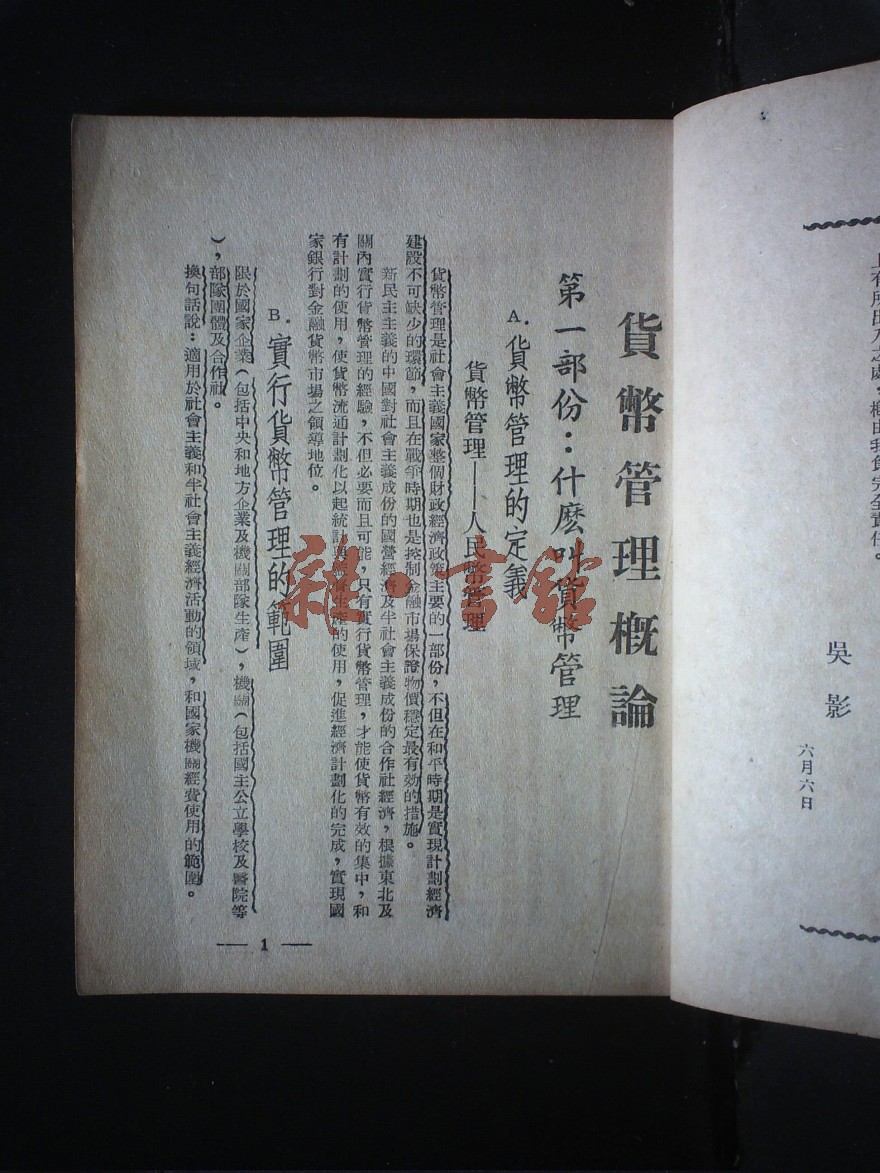 上有所出入之處，概由我負完全責任。
吳影
六月六日
貨幣管理概論
第一部份：什麽叫貨幣管理
A．貨幣管理的定義
貨幣管理——人民幣管理
貨幣管理是社會主義國家整個財政經濟政策主要的一部份，不但在和平時期是實現計劃經濟
建設不可缺少的環節，而且在戰爭時期也是控制金融市場保證物價穩定最有効的措施。
新民主主義的中國對社會主義成份的國營經濟及半社會主義成份的合作社經濟，根據東北及
關內實行貨幣管理的經驗，不但必要而且可能，只有實行貨幣管理，才能使貨幣有效的集中，和
有計劃的使用，使貨幣流通計劃化以起統計與經濟生產的使用，促進經濟計劃化的完成，實現國
家銀行對金融貨幣市場之領導地位。
B．實行貨幣管理的範圍
限於國家企業（包括中央和地方企業及機關部隊生產），機關（包括國主公立學校及醫院等
），部隊團體及合作社。
換句話說：適用於社會主義和半社會主義經濟活動的領域，和國家機關經費使用的範圍。
— 1 —
雜·書館